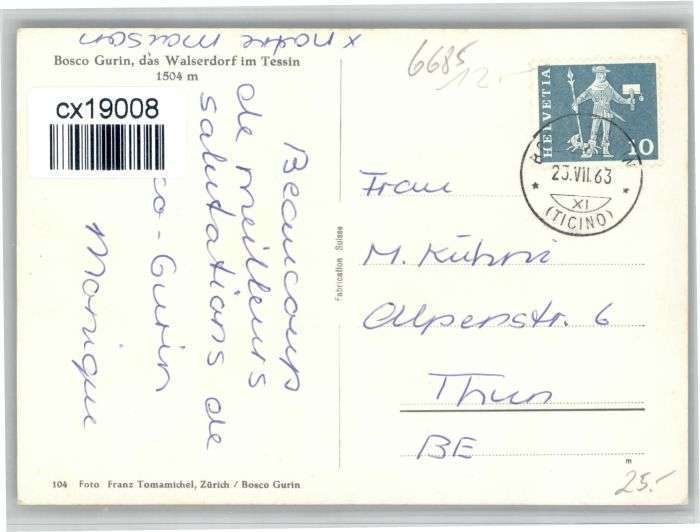 x notre maison
Bosco Gurin, das Walserdorf im Tessin
1504 m
cx19008
Beaucoup
de meilleurs
salutations de
co-Gurin
Monique
104 Foto Franz Tomamichel, Zürich / Bosco Gurin
Fabrication Suisse
6685
12.-
HELVETIA
10
23.VII.63
XI
(TICINO)
Frau
M.
Alpenstr. 6
Thun
BE
m
25.-